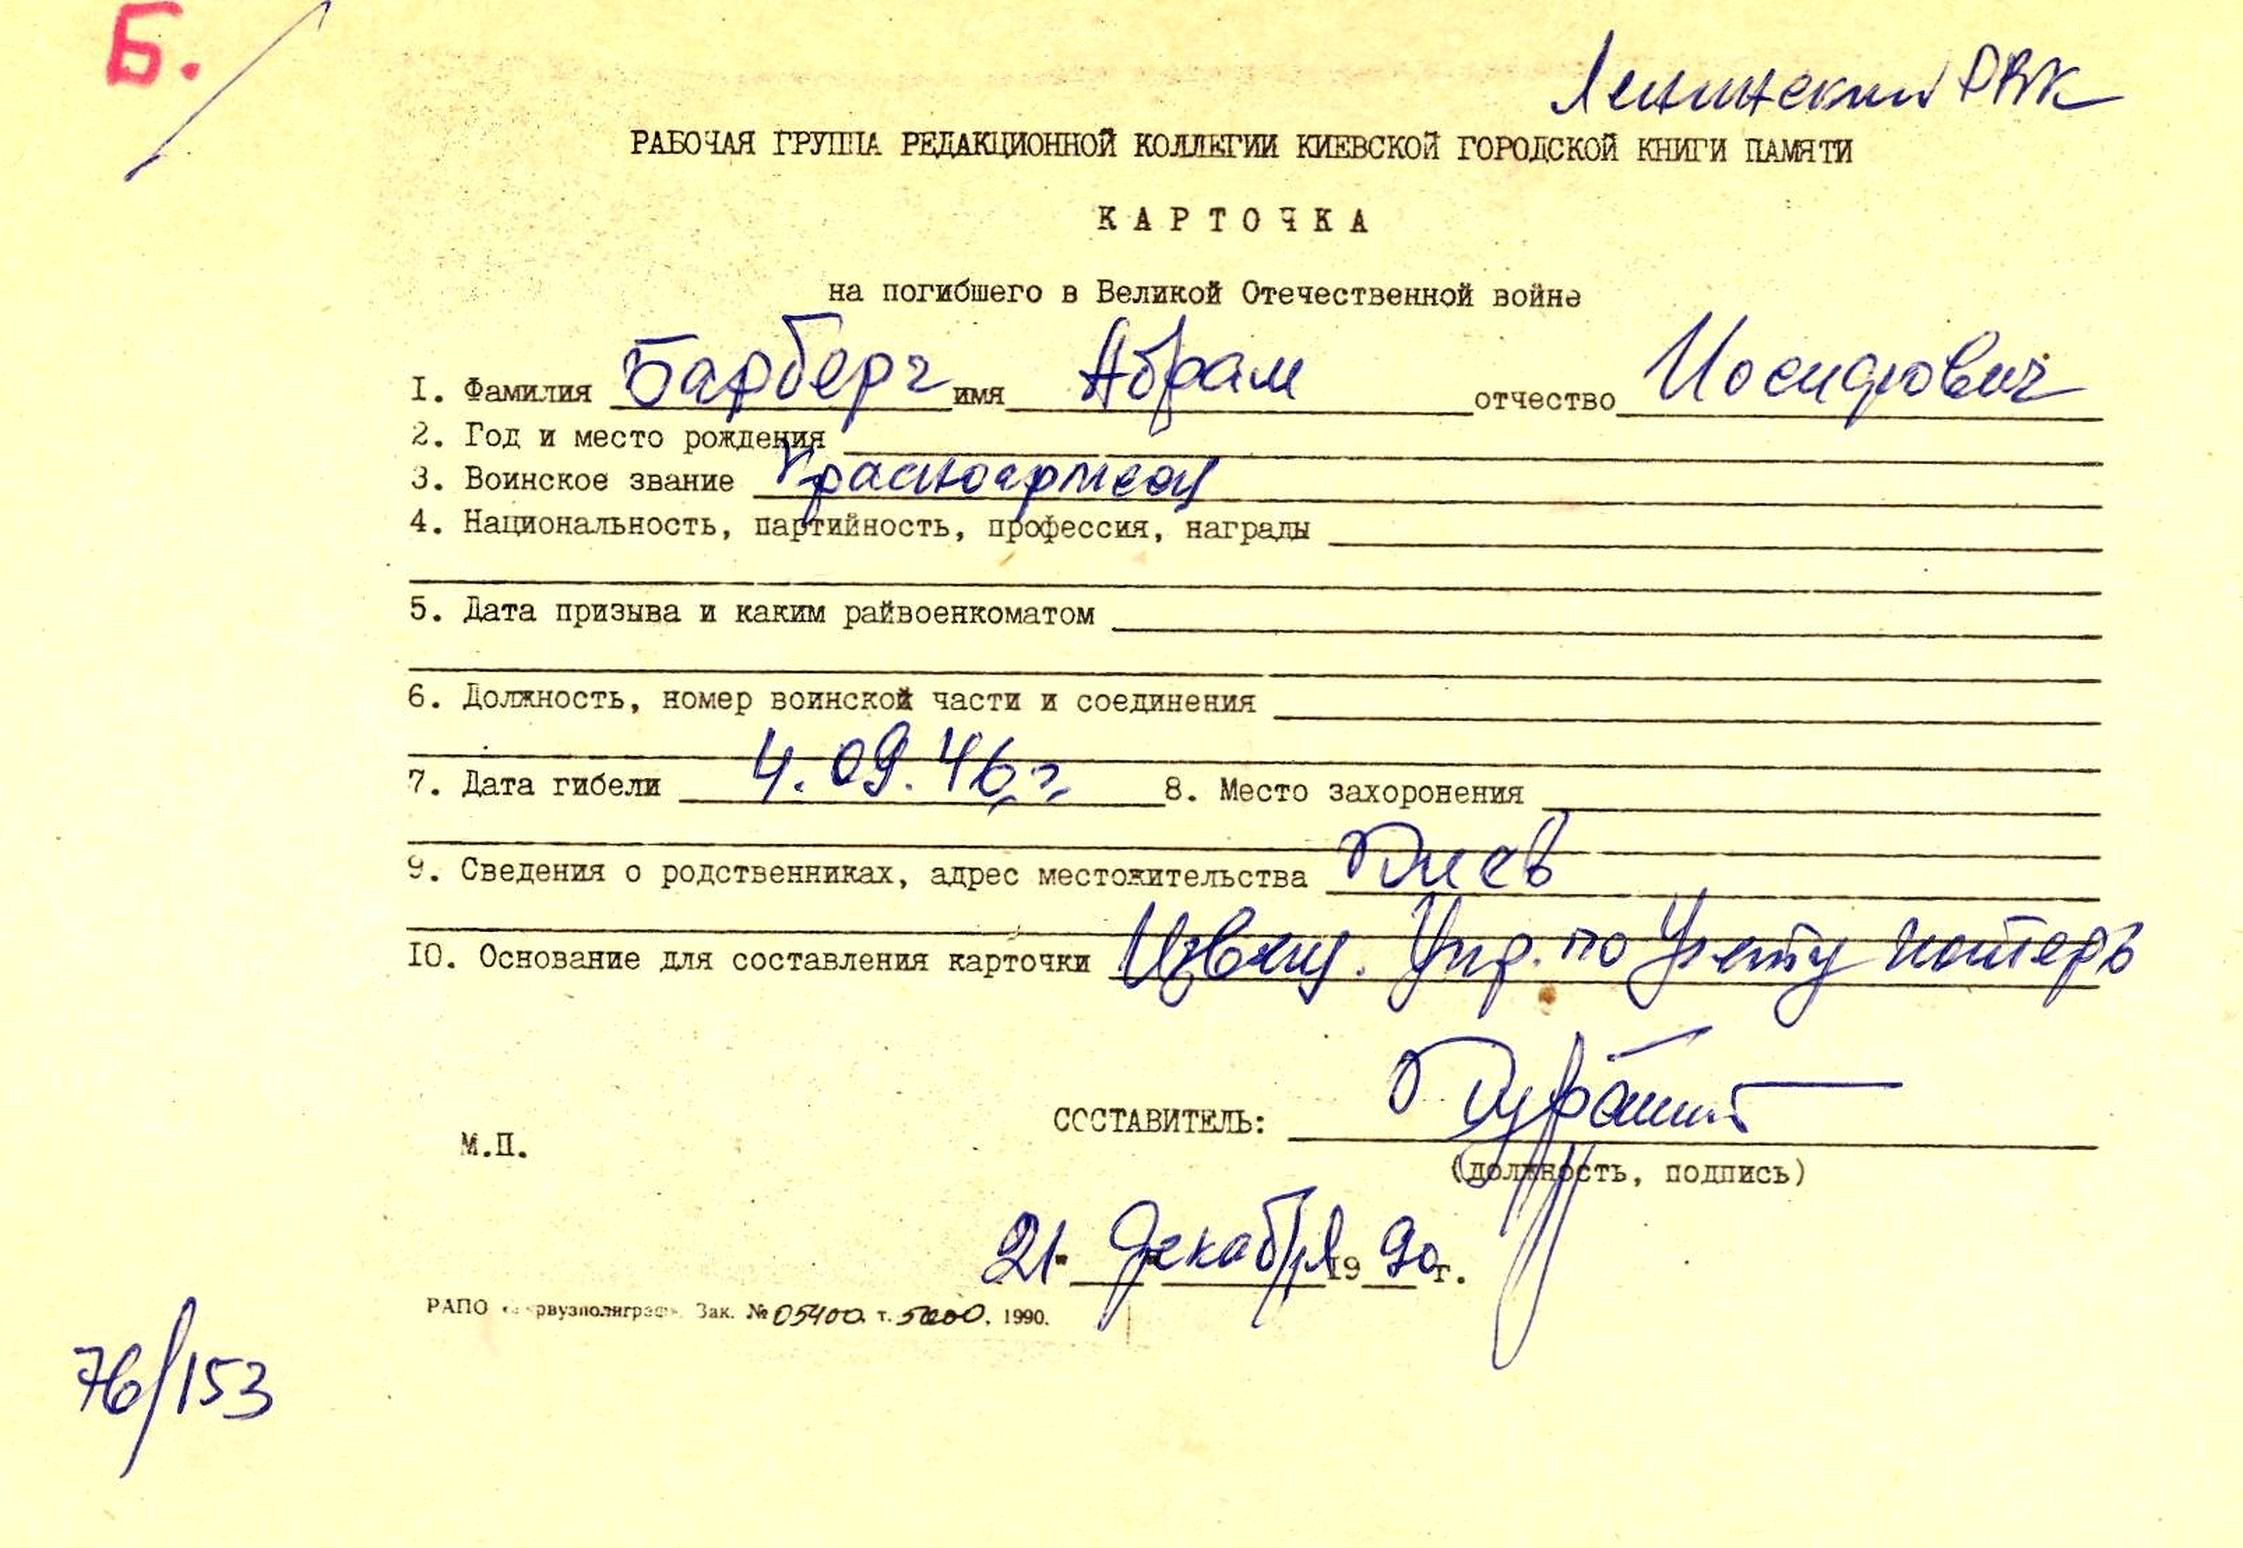 Б.
Ленинский РВК
РАБОЧАЯ ГРУППА РЕДАКЦИОННОЙ КОЛЛЕГИИ КИЕВСКОЙ ГОРОДСКОЙ КНИГИ ПАМЯТИ
КАРТОЧКА
на погибшего в Великой Отечественной войне
I. Фамилия Барберг имя Абрам отчество Иосифович
2. Год и место рождения
3. Воинское звание Красноармеец
4. Национальность, партийность, профессия, награды
5. Дата призыва и каким райвоенкоматом
6. Должность, номер воинской части и соединения
7. Дата гибели 4.09.46 г. 8. Место захоронения
9. Сведения о родственниках, адрес местожительства Киев
IO. Основание для составления карточки Извещ. Упр. по учету потерь
СОСТАВИТЕЛЬ:
М.П.
(должность, подпись)
21 декабря 1990 г.
РАПО Зак. № 05400 т. 5000. 1990.
76/153